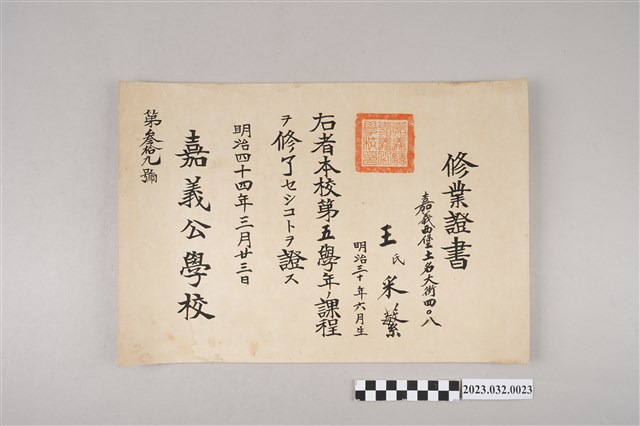 修業證書
嘉義西堡土名大街四〇八
王氏采蘩
明治三十年六月生
右者本校第五學年ノ課程
ヲ修了セシコトヲ證ス
明治四十四年三月廿三日
嘉義公學校
第叁拾九號
2023.032.0023